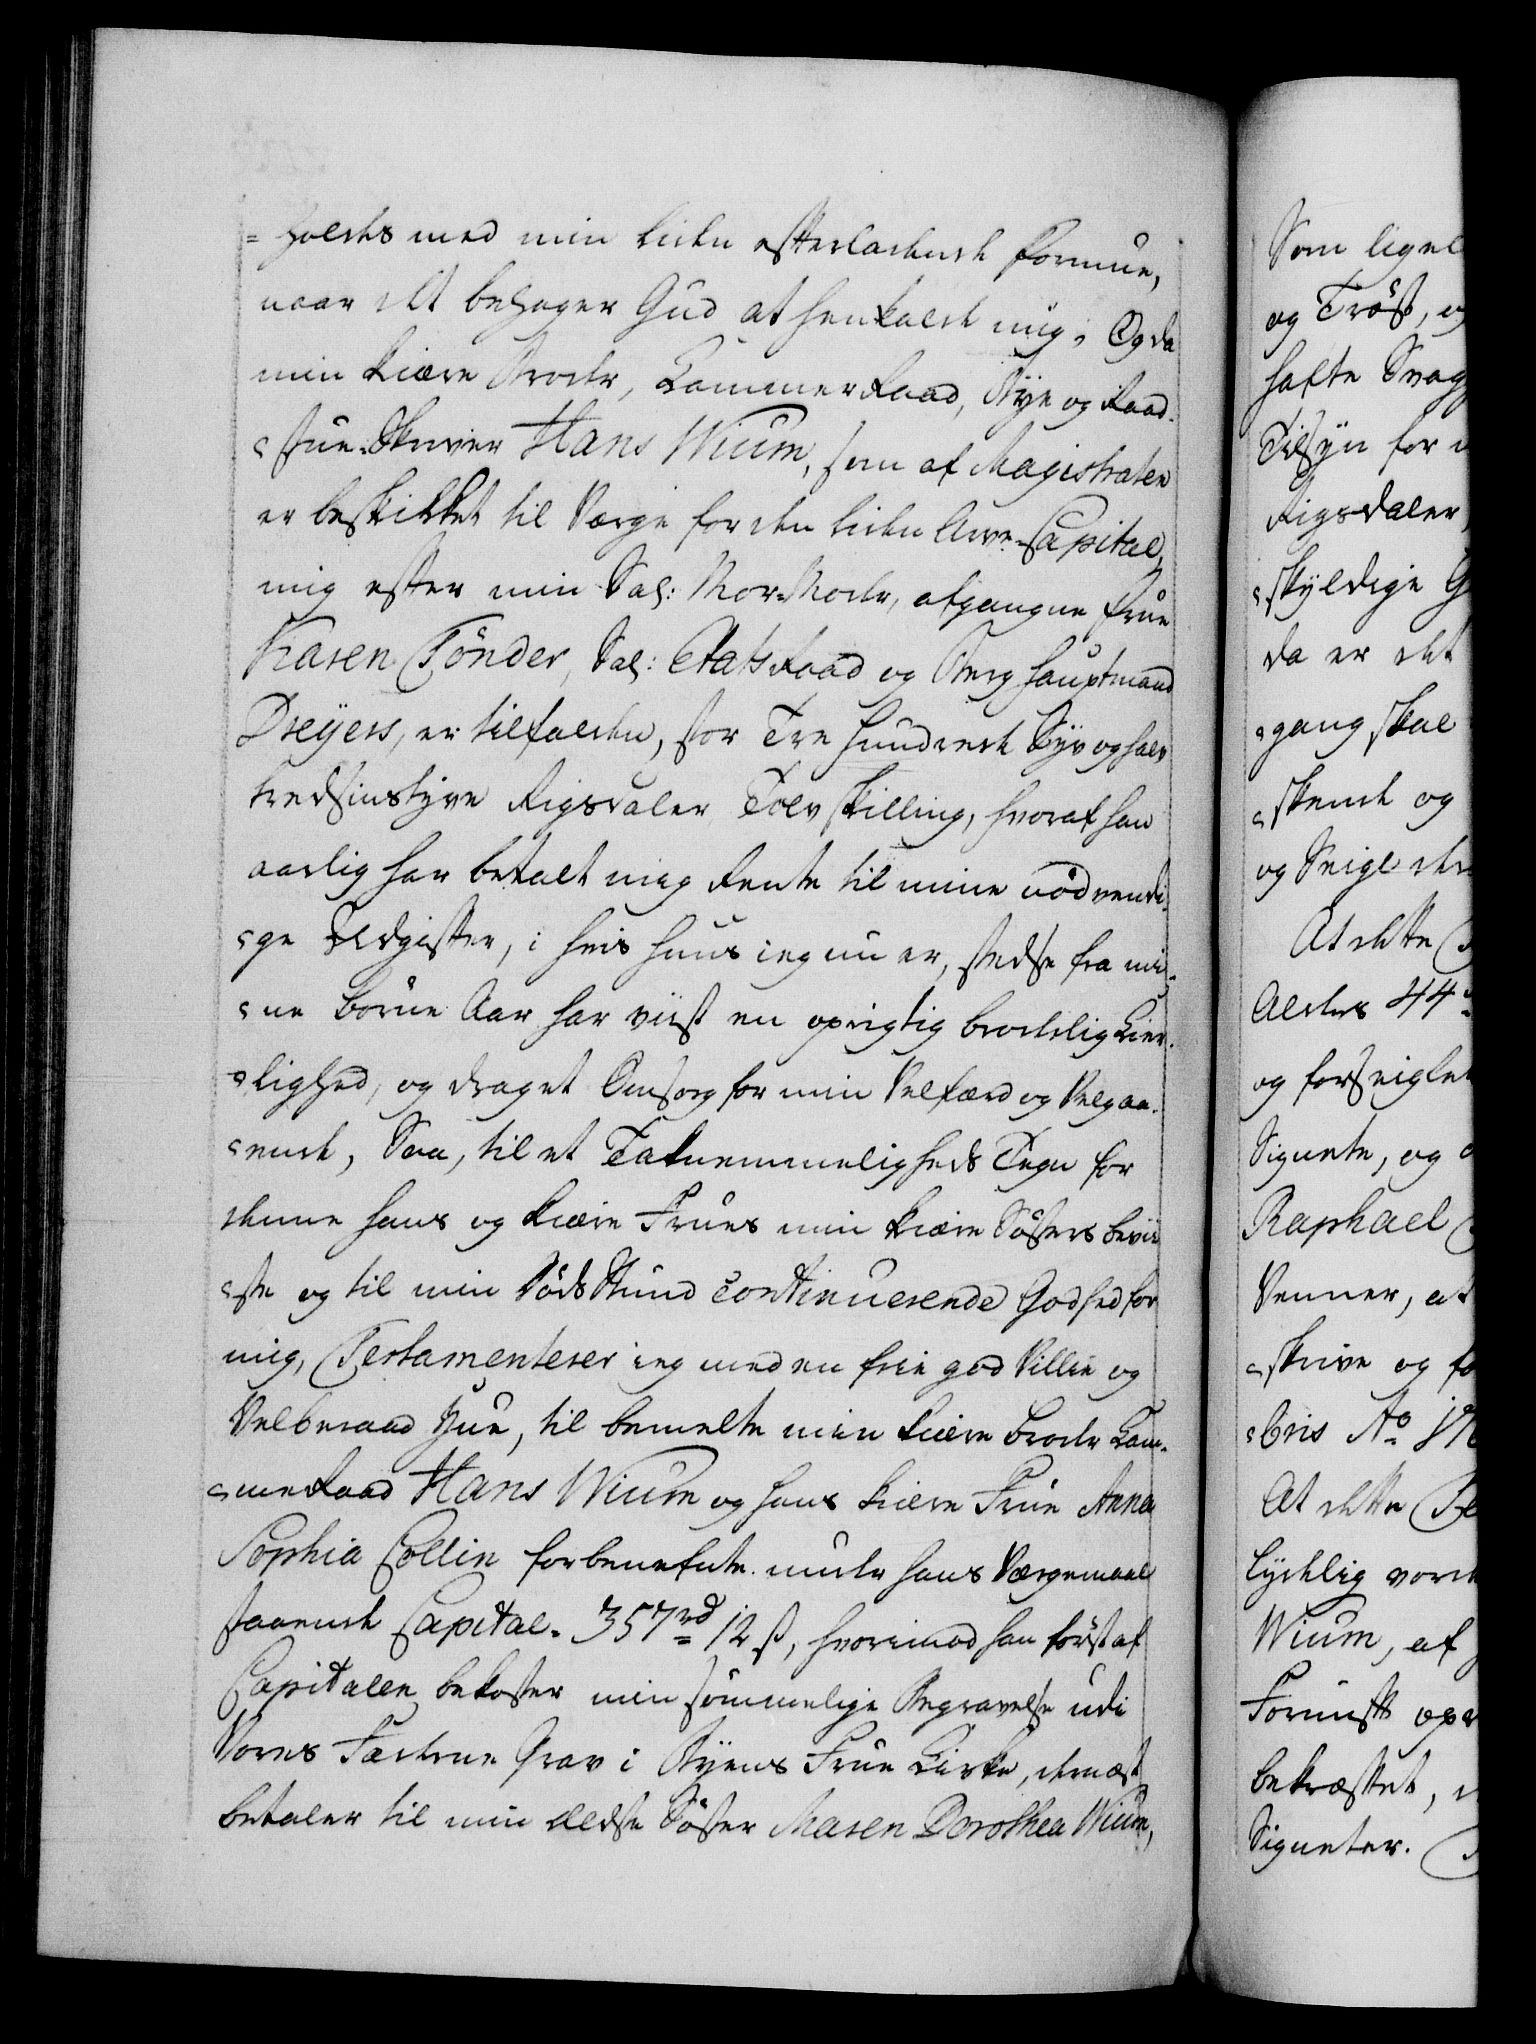 = holdes med min liden efterladende Formue,
naar det behager Gud at henkalde mig. Og da
min kiære Broder, Cammer Raad, Bye og Raad-
=stue-Skriver Hans Wium, som af Magistraten
er beskikket til Værge for den liden Arve-Capital,
mig efter min Sal: Mor-Moder, afgangne Frue
Karen Tönder, Sal: Etats Raad og Berg Hauptmand
Dreyers, er tilfalden, stor Tre Hundrede Syv og halv
tredsinstyve Rigsdaler Tolv skilling, hvoraf han
aarlig har betalt mig Rente til mine nödvendi-
=ge Udgifter, i hvis Huus ieg nu er, stedse fra mi-
=ne Börne Aar har viist en oprigtig broderlig Kier-
=lighed, og draget Omsorg for min Velfærd og Velgaa-
=ende, Saa, til et Taknemmeligheds Tegn for
denne hans og kiære Frues min kiære Sösters bevii-
=ste og til min Döds Stund continuerende Godhed for
mig, Testamenterer ieg med en frie god Villie og
Velberaad Hue, til bemelte min kiære Broder Cam-
=merRaad Hans Wium og hans kiære Frue Anna
Sophia Collin forbenefnte under hans Værgemaal
staaende Capital 357 rd 12 ß, hvorimod han först af
Capitalen bekoster min sömmelige Begravelse udi
Vores Fædrene Grav i Byens Frue Kirke, dernæst
betaler til min ældste Söster Maren Dorothea Wium,
Som ligel
og Tröst, og
hafte Svag
Tilsyn for
Rigsdaler
=skyldige G
da er det
=gang skal
=skende og
og Seigl der
At dette
Alders 44
og forseiglet
Signete, og
Raphael
Venner, at
=skrive og fo
=bris Ao 17
At dette Te
lydelig vord
Wium, af
Fornuft op
bekræftet,
Signeter.